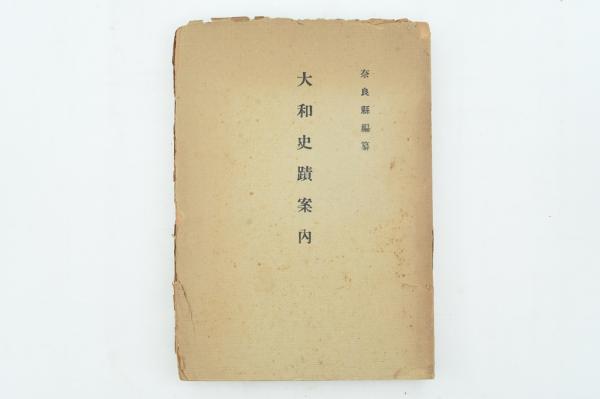 奈良縣編纂
大和史蹟案內